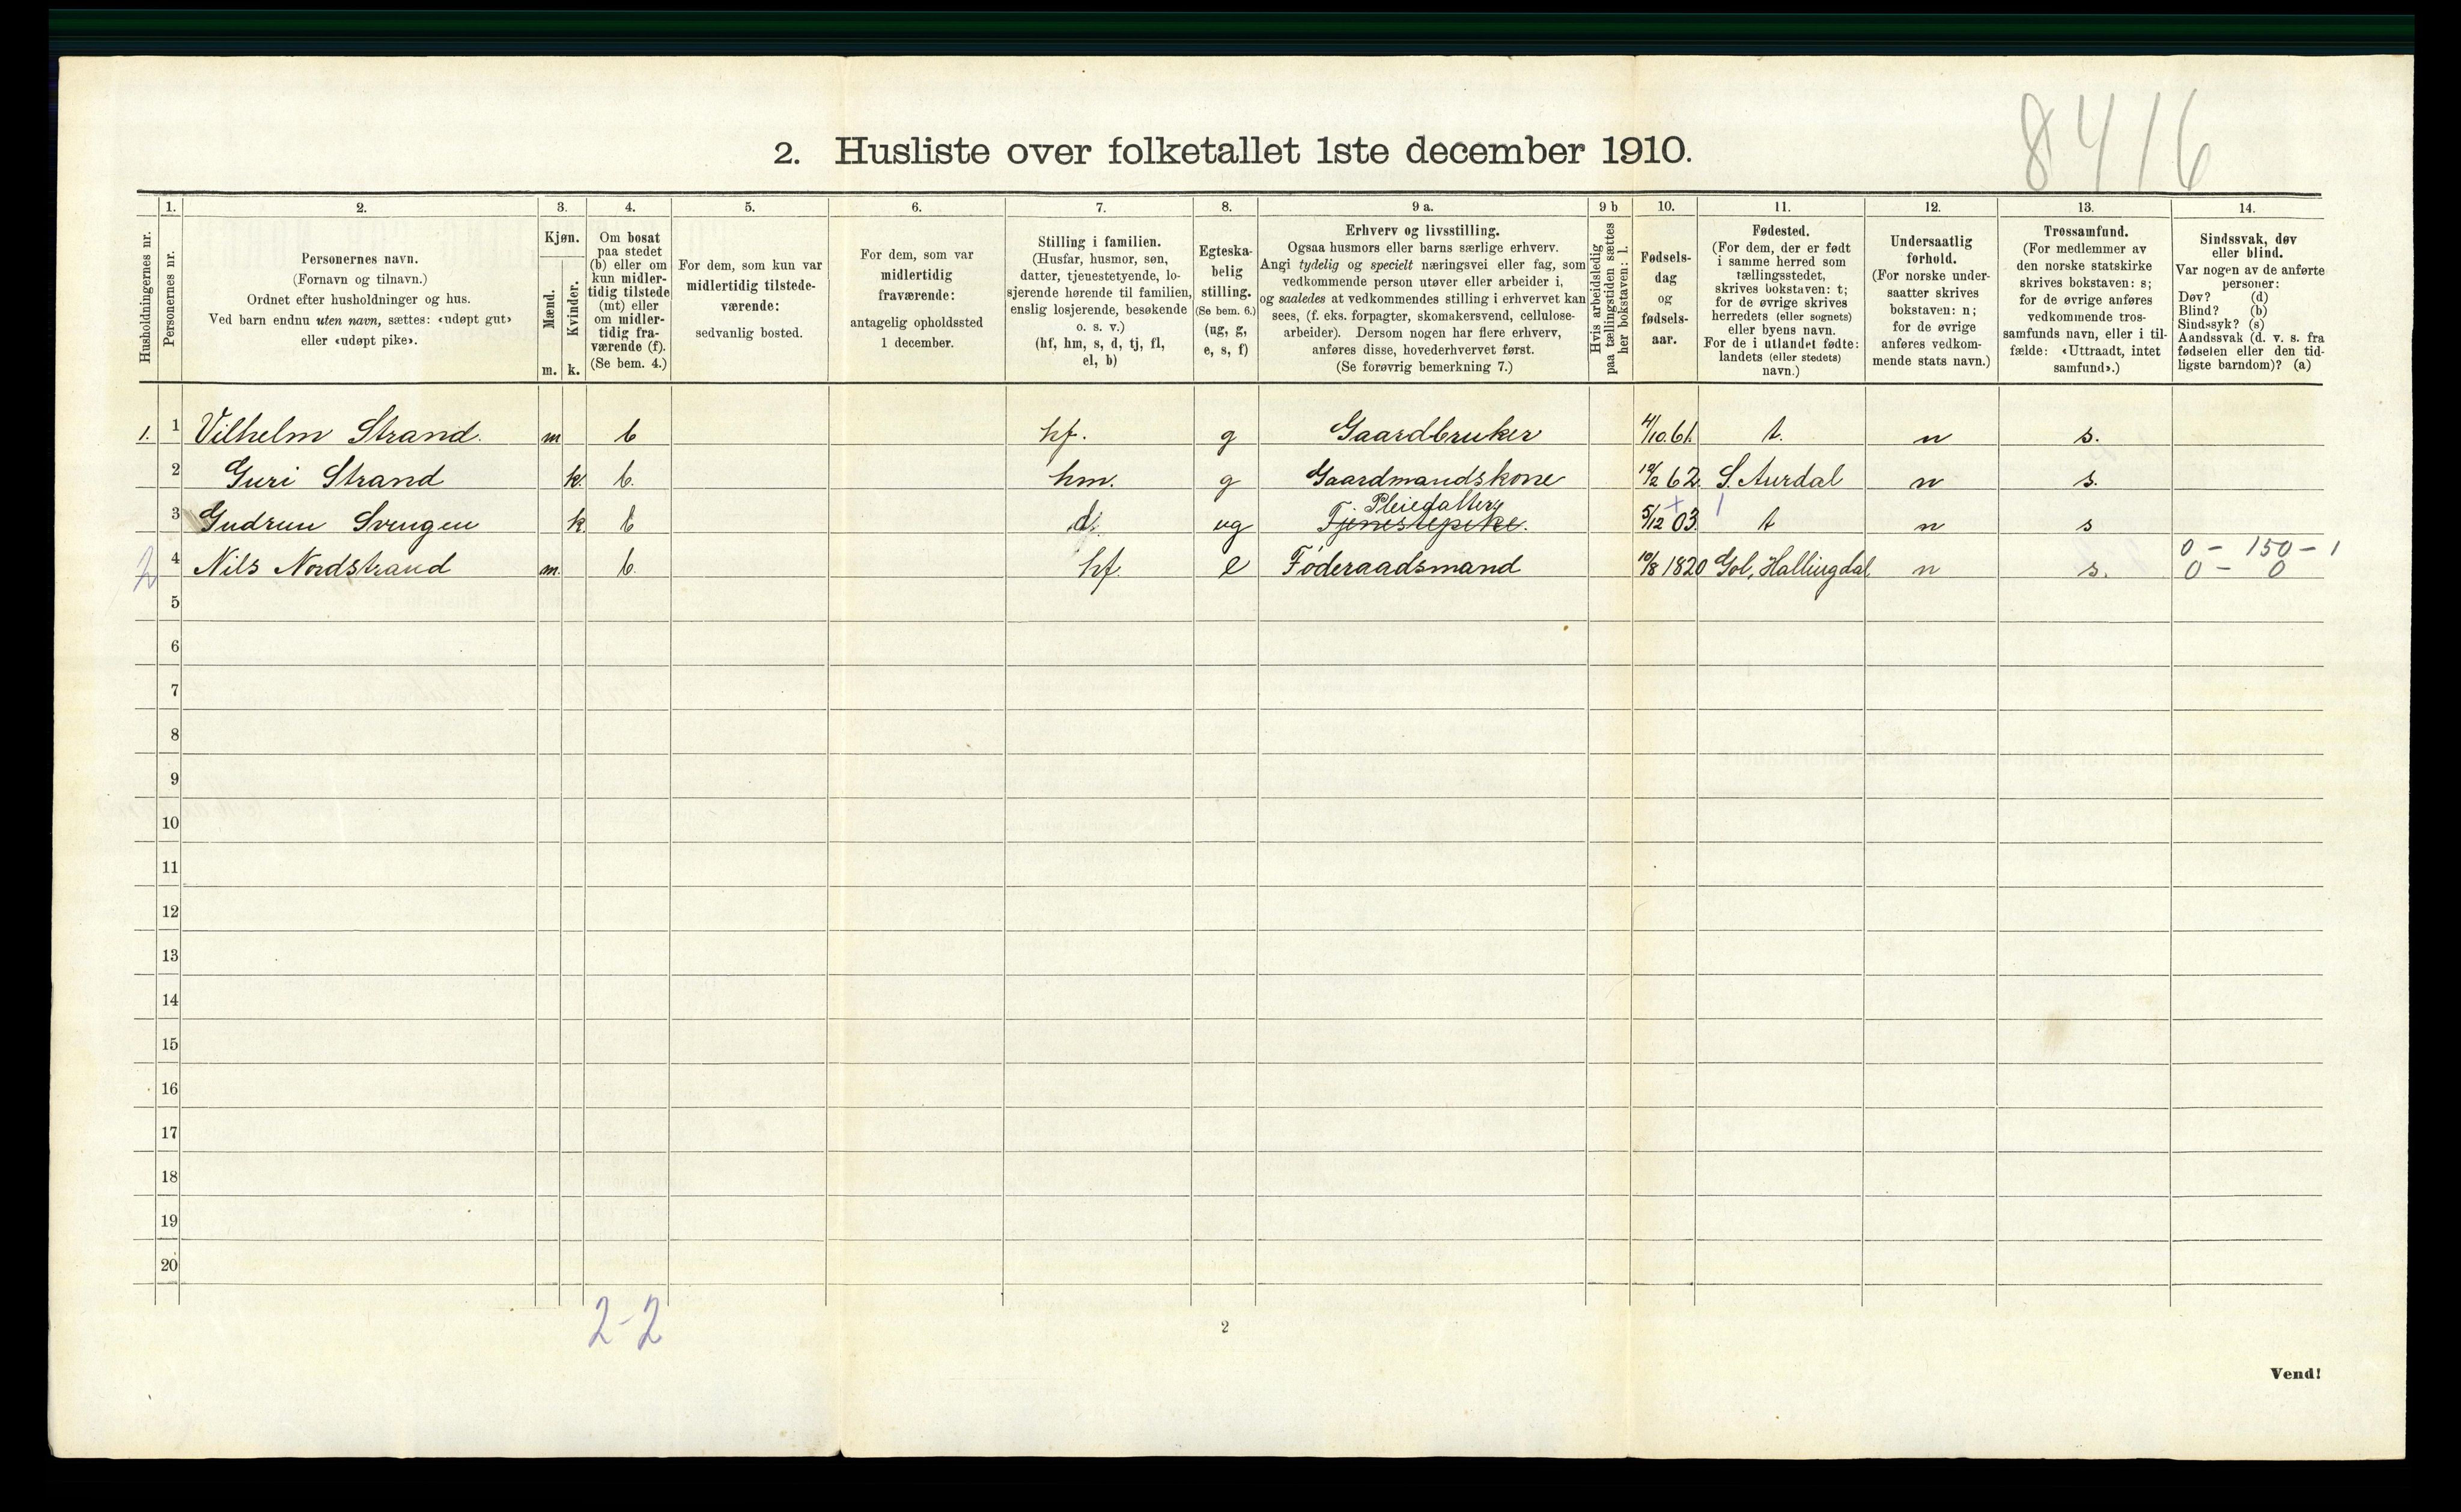 8416
2. Husliste over folketallet 1ste december 1910.
Husholdningernes nr.
1. Personernes nr.
2. Personernes navn.
(Fornavn og tilnavn.)
Ordnet efter husholdninger og hus.
Ved barn endnu uten navn, sættes: «udøpt gut»
eller «udøpt pike».
3. Kjøn.
Mænd. Kvinder.
m. k.
4. Om bosat
paa stedet
(b) eller om
kun midler-
tidig tilstede
(mt) eller
om midler-
tidig fra-
værende (f).
(Se bem. 4.)
5. For dem, som kun var
midlertidig tilstede-
værende:
sedvanlig bosted.
6. For dem, som var
midlertidig
fraværende:
antagelig opholdssted
1 december.
7. Stilling i familien.
(Husfar, husmor, søn,
datter, tjenestetyende, lo-
sjerende hørende til familien,
enslig losjerende, besøkende
o. s. v.)
(hf, hm, s, d, tj, fl,
el, b)
8. Egteska-
belig
stilling.
(Se bem. 6.)
(ug, g,
e, s, f)
9 a. Erhverv og livsstilling.
Ogsaa husmors eller barns særlige erhverv.
Angi tydelig og specielt næringsvei eller fag, som
vedkommende person utøver eller arbeider i,
og saaledes at vedkommendes stilling i erhvervet kan
sees, (f. eks. forpagter, skomakersvend, cellulose-
arbeider). Dersom nogen har flere erhverv,
anføres disse, hovederhvervet først.
(Se forøvrig bemerkning 7.)
9 b Hvis arbeidsledig
paa tællingstiden sættes
her bokstaven: l.
10. Fødsels-
dag
og
fødsels-
aar.
11. Fødested.
(For dem, der er født
i samme herred som
tællingsstedet,
skrives bokstaven: t;
for de øvrige skrives
herredets (eller sognets)
eller byens navn.
For de i utlandet fødte:
landets (eller stedets)
navn.)
12. Undersaatlig
forhold.
(For norske under-
saatter skrives
bokstaven: n;
for de øvrige
anføres vedkom-
mende stats navn.)
13. Trossamfund.
(For medlemmer av
den norske statskirke
skrives bokstaven: s;
for de øvrige anføres
vedkommende tros-
samfunds navn, eller i til-
fælde: «Uttraadt, intet
samfund».)
14. Sindssvak, døv
eller blind.
Var nogen av de anførte
personer:
Døv? (d)
Blind? (b)
Sindssyk? (s)
Aandssvak (d. v. s. fra
fødselen eller den tid-
ligste barndom)? (a)
1. 1 Vilhelm Strand. m b hf. g Gaardbruker 4/10.61. t. n s.
2 Guri Strand k. b. hm. g Gaardmandskone 12/2 62 S. Aurdal n s.
Pleiedatter
3 Gudrun Svengen k. b d. ug Tjenestepike. 5/12 03. t n s
0 - 150 - 1
2 4 Nils Nordstrand m. b. hf. e Føderaadsmand 10/8 1820 Gol, Hallingdal n s. 0 - 0
5
6
7
8
9
10
11
12
13
14
15
16
17
18
19
20
2-2
2
Vend!